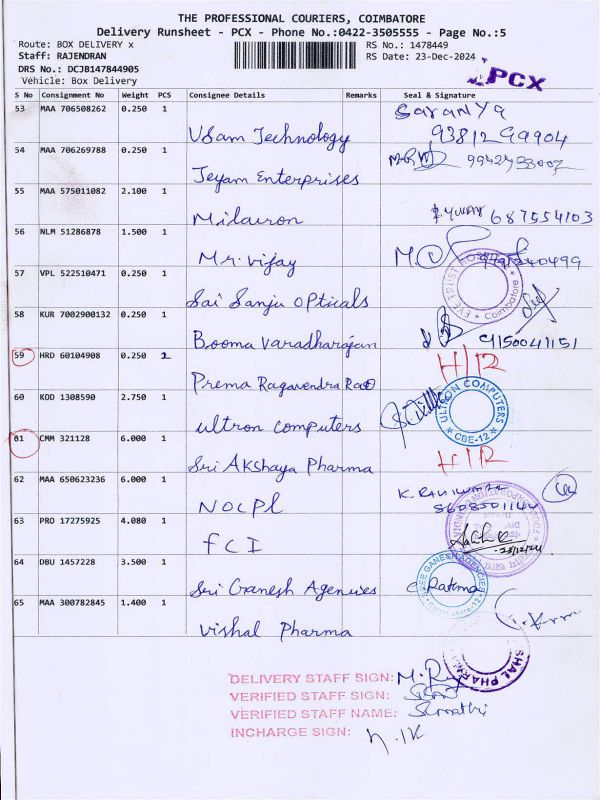 THE PROFESSIONAL COURIERS, COIMBATORE
Delivery Runsheet - PCX - Phone No.:0422-3505555 - Page No.:5
Route: BOX DELIVERY x
RS No.: 1478449
Staff: RAJENDRAN
RS Date: 23-Dec-2024
DRS No.: DCJB147844905
Vehicle: Box Delivery
PCX
S No Consignment No Weight PCS Consignee Details Remarks Seal & Signature
53 MAA 706508262 0.250 1 USam Technology Saranya 9381299904
54 MAA 706269788 0.250 1 Jeyam Enterprises
55 MAA 575011082 2.100 1 Milauron 687554103
56 NLM 51286878 1.500 1 Mr. Vijay
57 VPL 522510471 0.250 1 Sai Sanju opticals Coimbatore
58 KUR 7002900132 0.250 1 Booma Varadharajan 9150041151
59 HRD 60104908 0.250 2 Prema Ragavendra Rao H/12
60 KOD 1308590 2.750 1 ultron computers ULTRON COMPUTERS CBE-12
61 CMM 321128 6.000 1 Sri Akshaya Pharma
62 MAA 650623236 6.000 1 NOCPL K. RAVIKUMAR
63 PRO 17275925 4.080 1 FCI
64 DBU 1457228 3.500 1 Sri Ganesh Agencies
65 MAA 300782845 1.400 1 Vishal Pharma
DELIVERY STAFF SIGN:
VERIFIED STAFF SIGN:
VERIFIED STAFF NAME: Sumathi
INCHARGE SIGN: